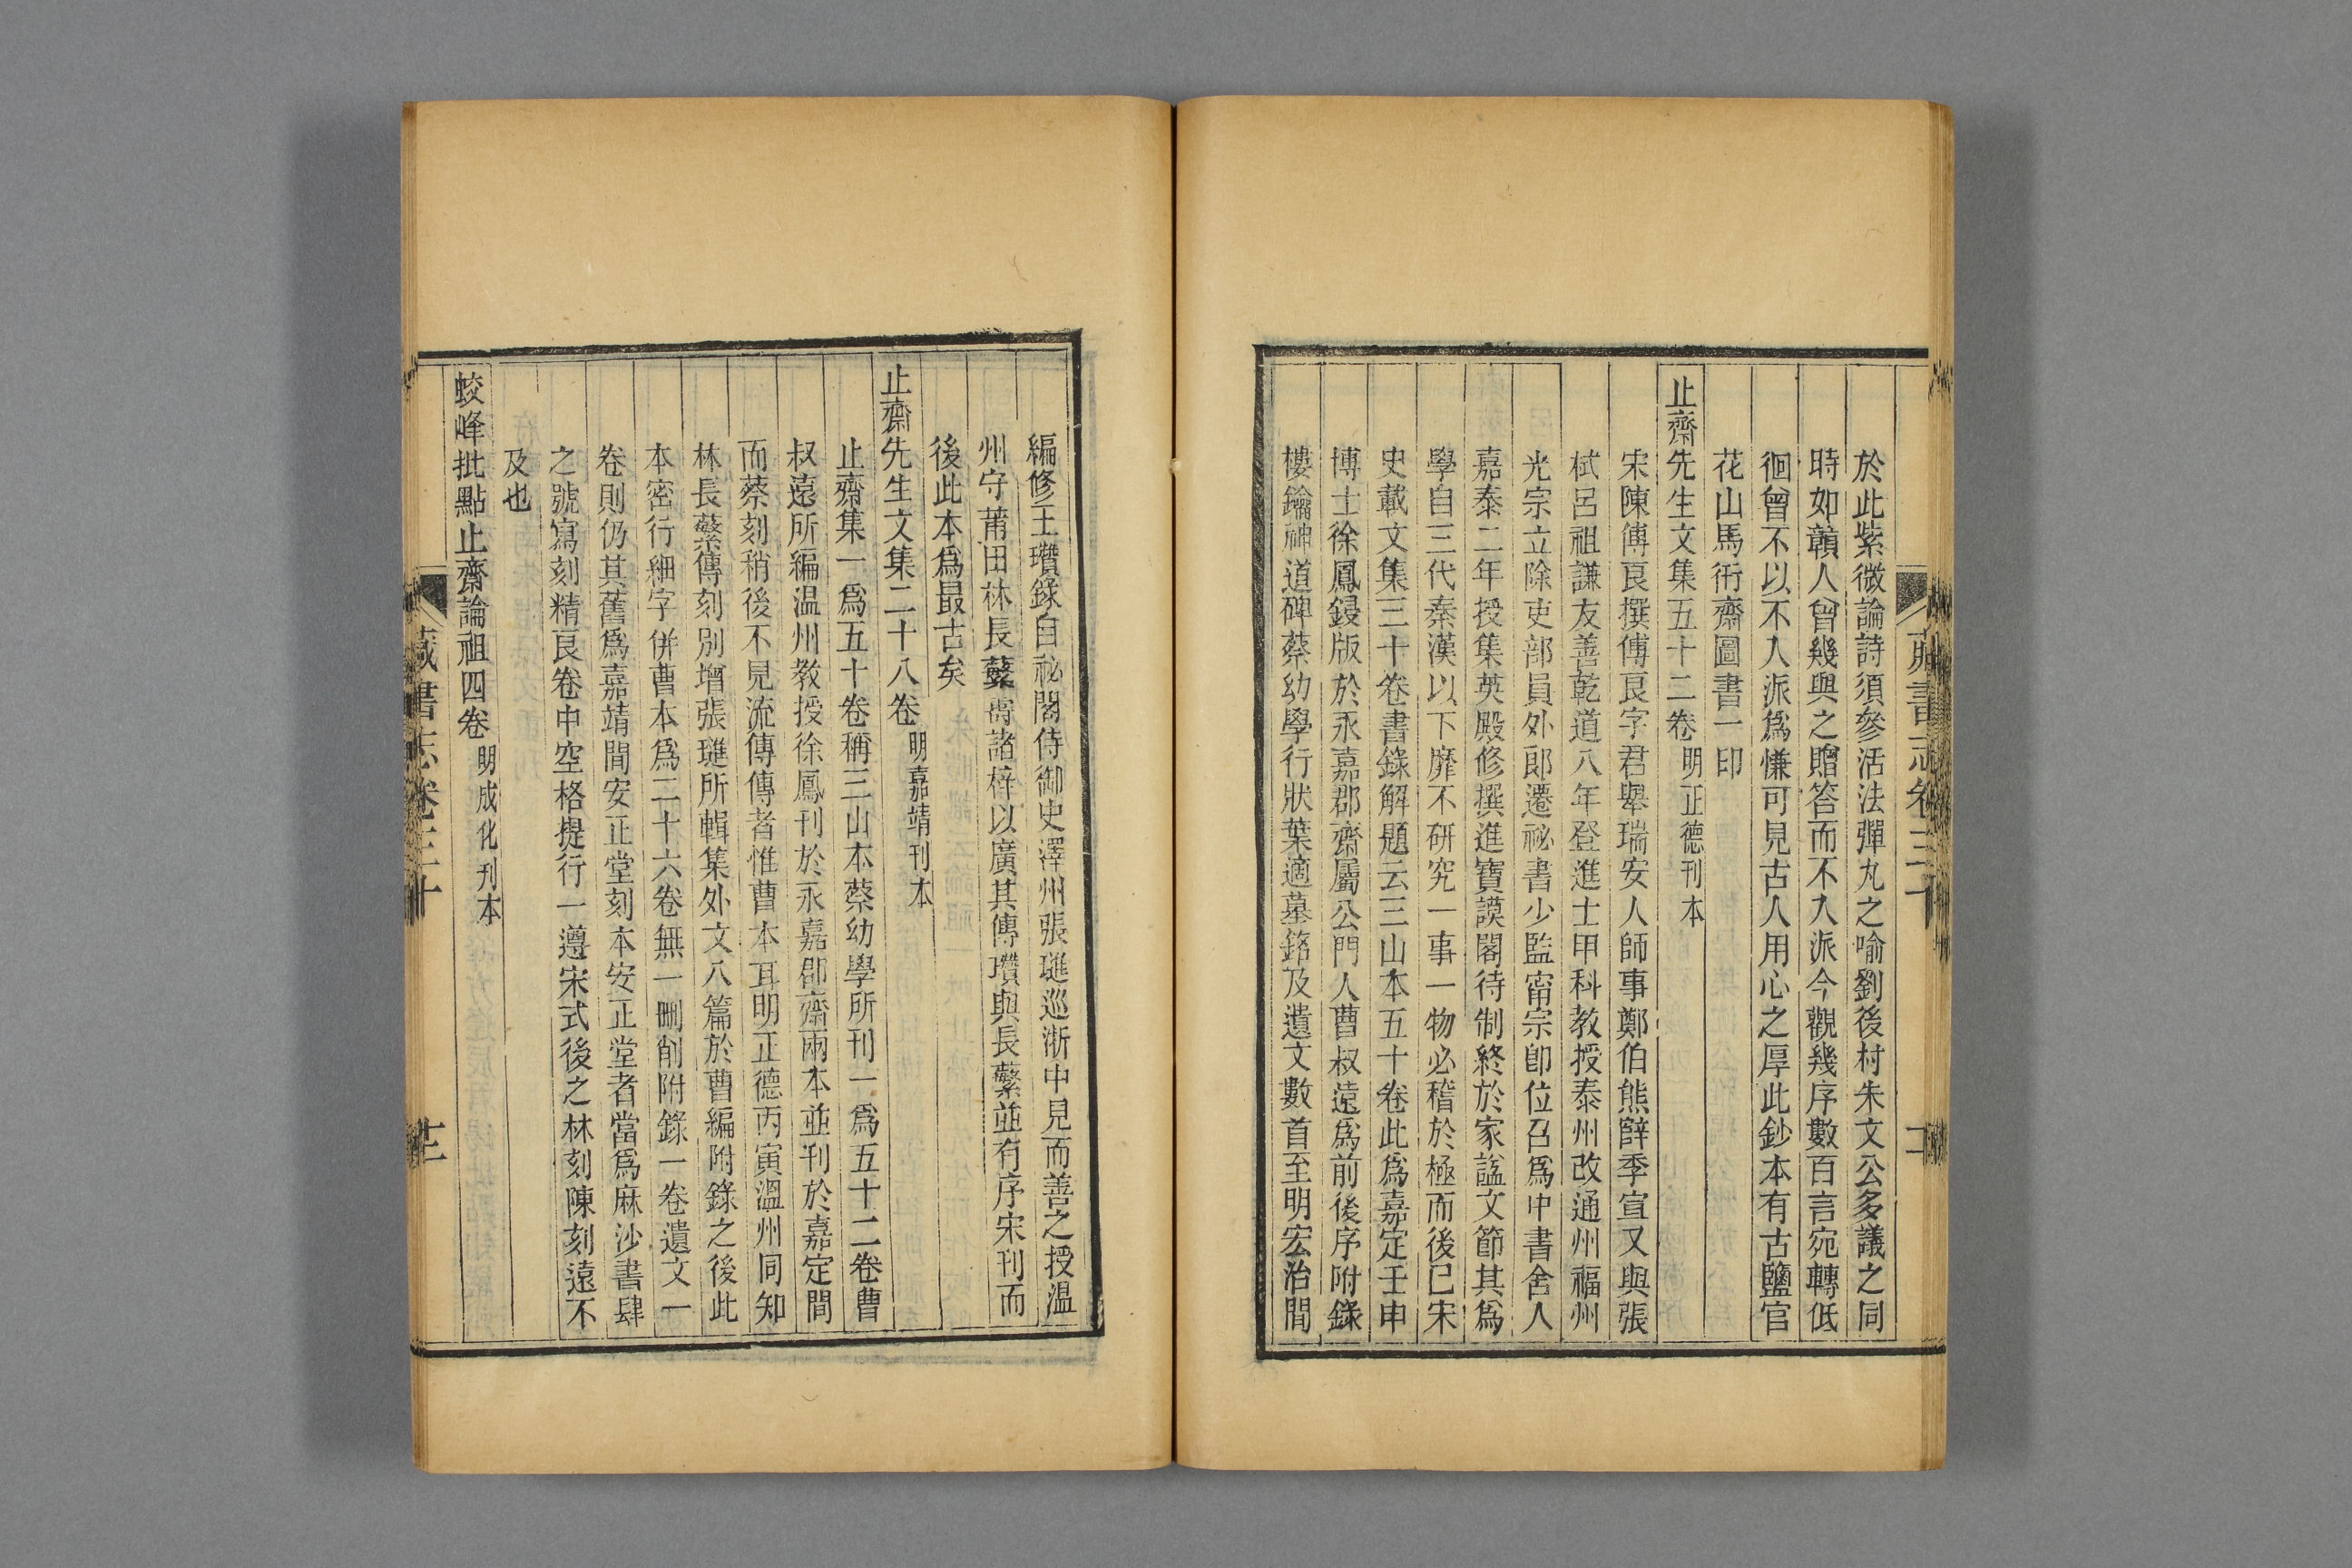 於此紫微論詩須參活法彈丸之喻劉後村朱文公多議之同
時如贛人曾幾與之贈答而不入派今觀幾序數百言宛轉低
徊曾不以不入派爲慊可見古人用心之厚此鈔本有古鹽官
花山馬衎齋圖書一印
止齋先生文集五十二卷 明正德刊本
宋陳傅良撰傅良字君舉瑞安人師事鄭伯熊薛季宣又與張
栻呂祖謙友善乾道八年登進士甲科教授泰州改通州福州
光宗立除吏部員外郎遷祕書少監甯宗卽位召爲中書舍人
嘉泰二年授集英殿修撰進寶謨閣待制終於家諡文節其爲
學自三代秦漢以下靡不研究一事一物必稽於極而後已宋
史載文集三十卷書錄解題云三山本五十卷此爲嘉定壬申
博士徐鳳鋟版於永嘉郡齋屬公門人曹叔遠爲前後序附錄
樓鑰神道碑蔡幼學行狀葉適墓銘及遺文數首至明宏治間
編修王瓚錄自祕閣侍御史澤州張璡巡浙中見而善之授温
州守莆田林長蘩壽諸梓以廣其傳瓚與長蘩並有序宋刊而
後此本爲最古矣
止齋先生文集二十八卷 明嘉靖刊本
止齋集一爲五十卷稱三山本蔡幼學所刊一爲五十二卷曹
叔遠所編温州教授徐鳳刊於永嘉郡齋兩本並刊於嘉定間
而蔡刻稍後不見流傳傳者惟曹本耳明正德丙寅溫州同知
林長蘩傳刻別增張璡所輯集外文八篇於曹編附錄之後此
本密行細字併曹本爲二十六卷無一刪削附錄一卷遺文一
卷則仍其舊爲嘉靖間安正堂刻本安正堂者當爲麻沙書肆
之號寫刻精良卷中空格提行一遵宋式後之林刻陳刻遠不
及也
蛟峰批點止齋論祖四卷 明成化刊本
藏書志卷三十